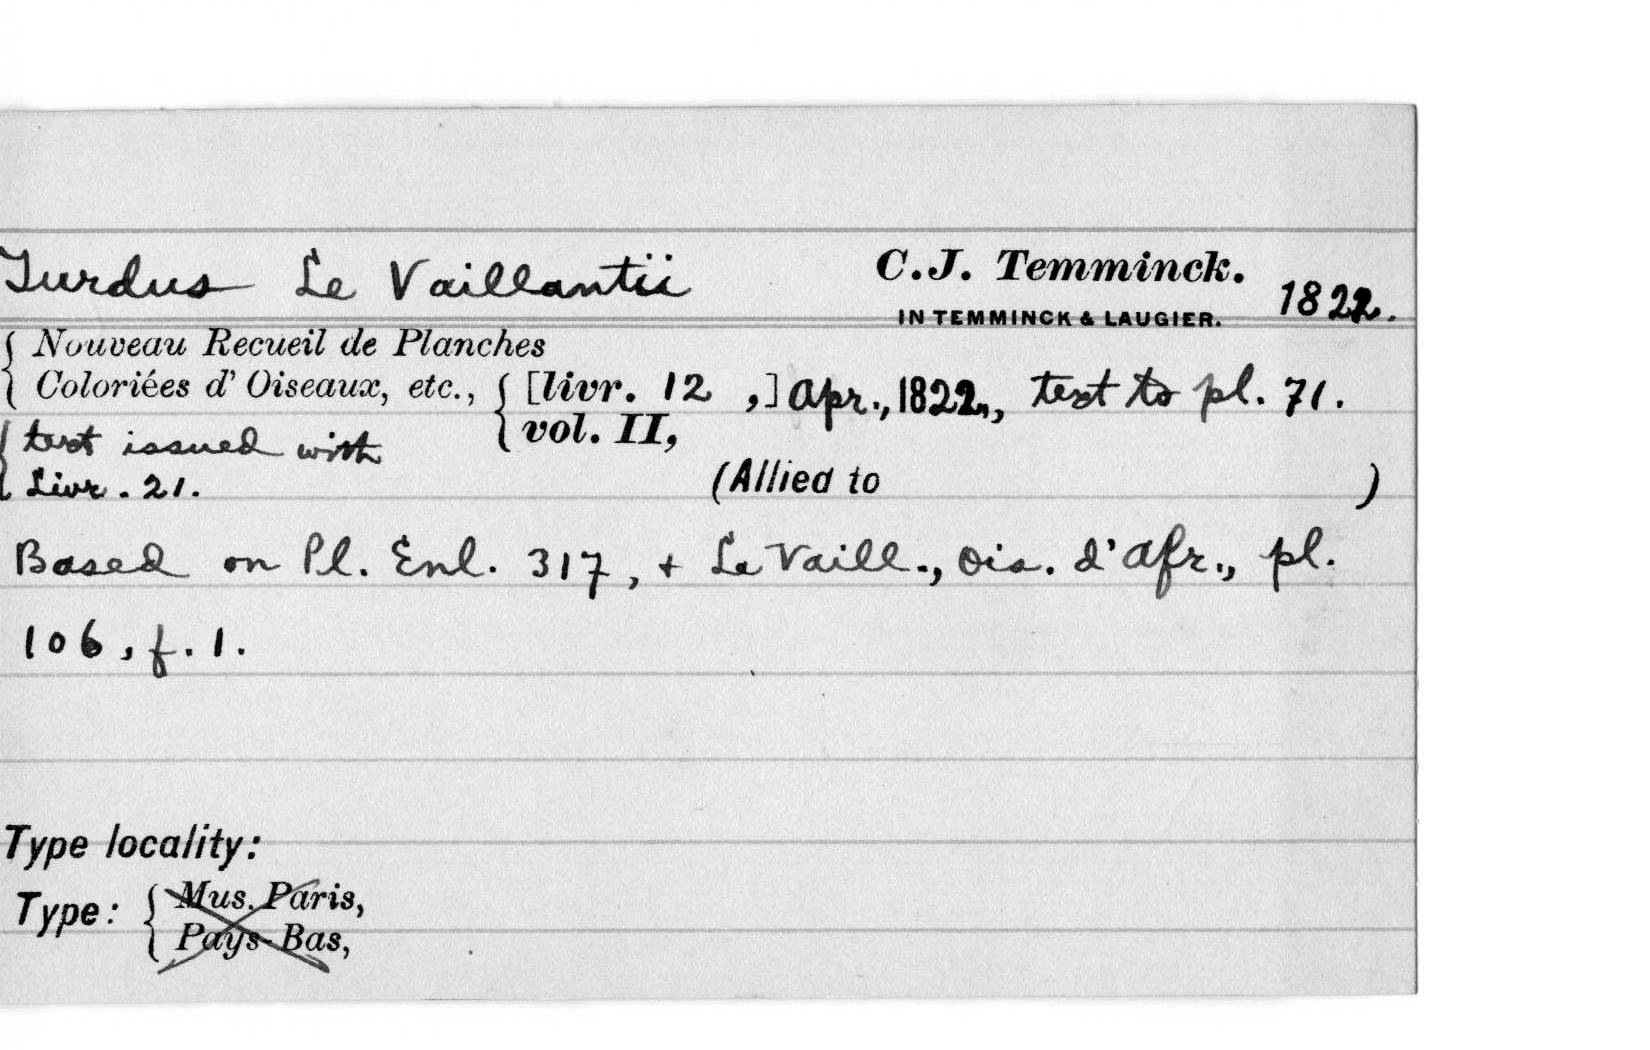 Turdus Le Vaillantii C.J. Temminck. 1822.
IN TEMMINCK & LAUGIER.
Nouveau Recueil de Planches
Coloriées d' Oiseaux, etc., [livr. 12 ,] Apr., 1822, text to pl. 71.
vol. II,
text issued with
Livr. 21. (Allied to )
Based on Pl. Enl. 317, + Le Vaill., Ois. d'Afr., pl.
106, f. 1.
Type locality:
Type: Mus. Paris,
Pays-Bas,